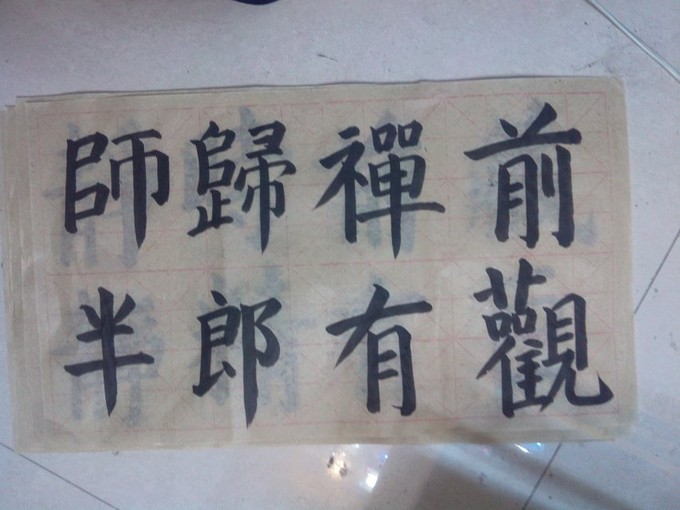 前觀
禪有
歸郎
師半